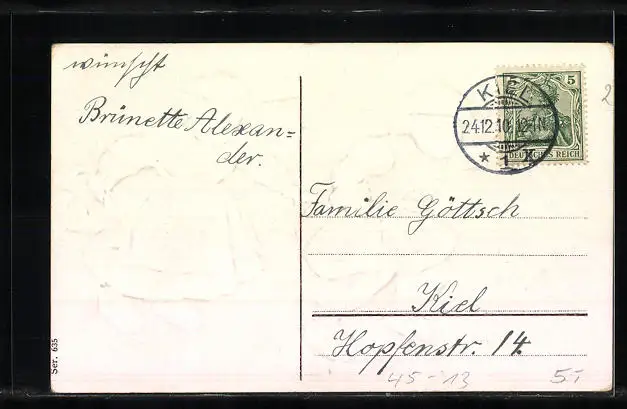 wünscht
Brünette Alexan=
der.
KIEL
24.12.10. 12-1N.
* 1 x
5
DEUTSCHES REICH
Familie Göttsch
Kiel
Hopfenstr. 14.
Ser. 635
45-13
5.-
2